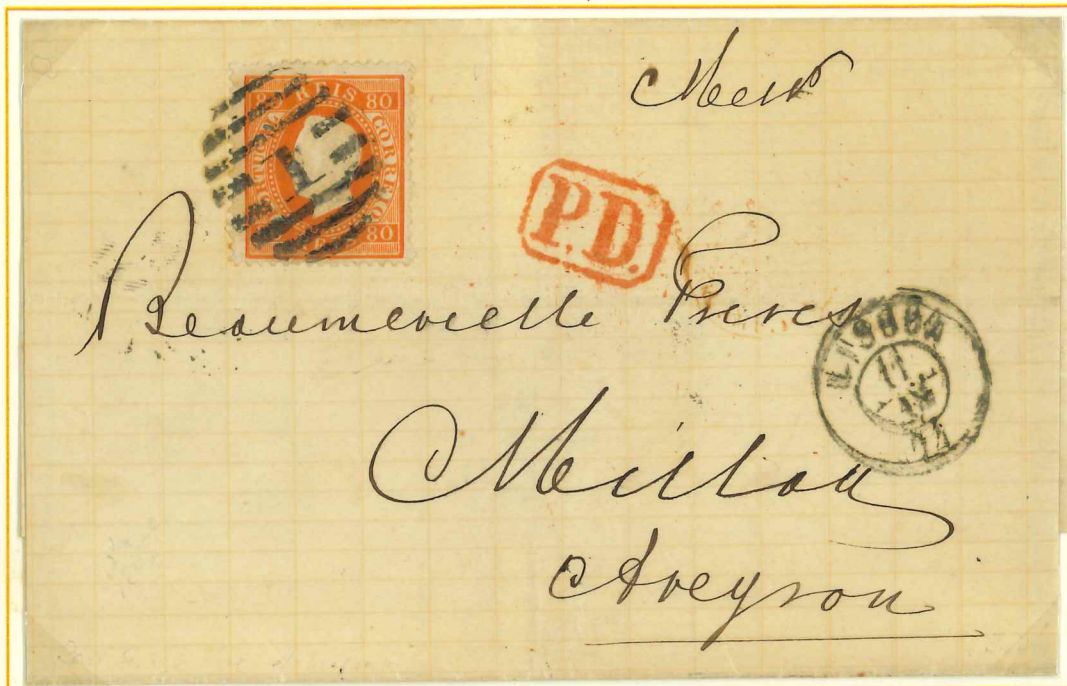 Mess
80 REIS 80
PORTUGAL CORREIO
80
1
P.D.
Beaumevielle Freres
LISBOA
11
74
Millau
Aveyron